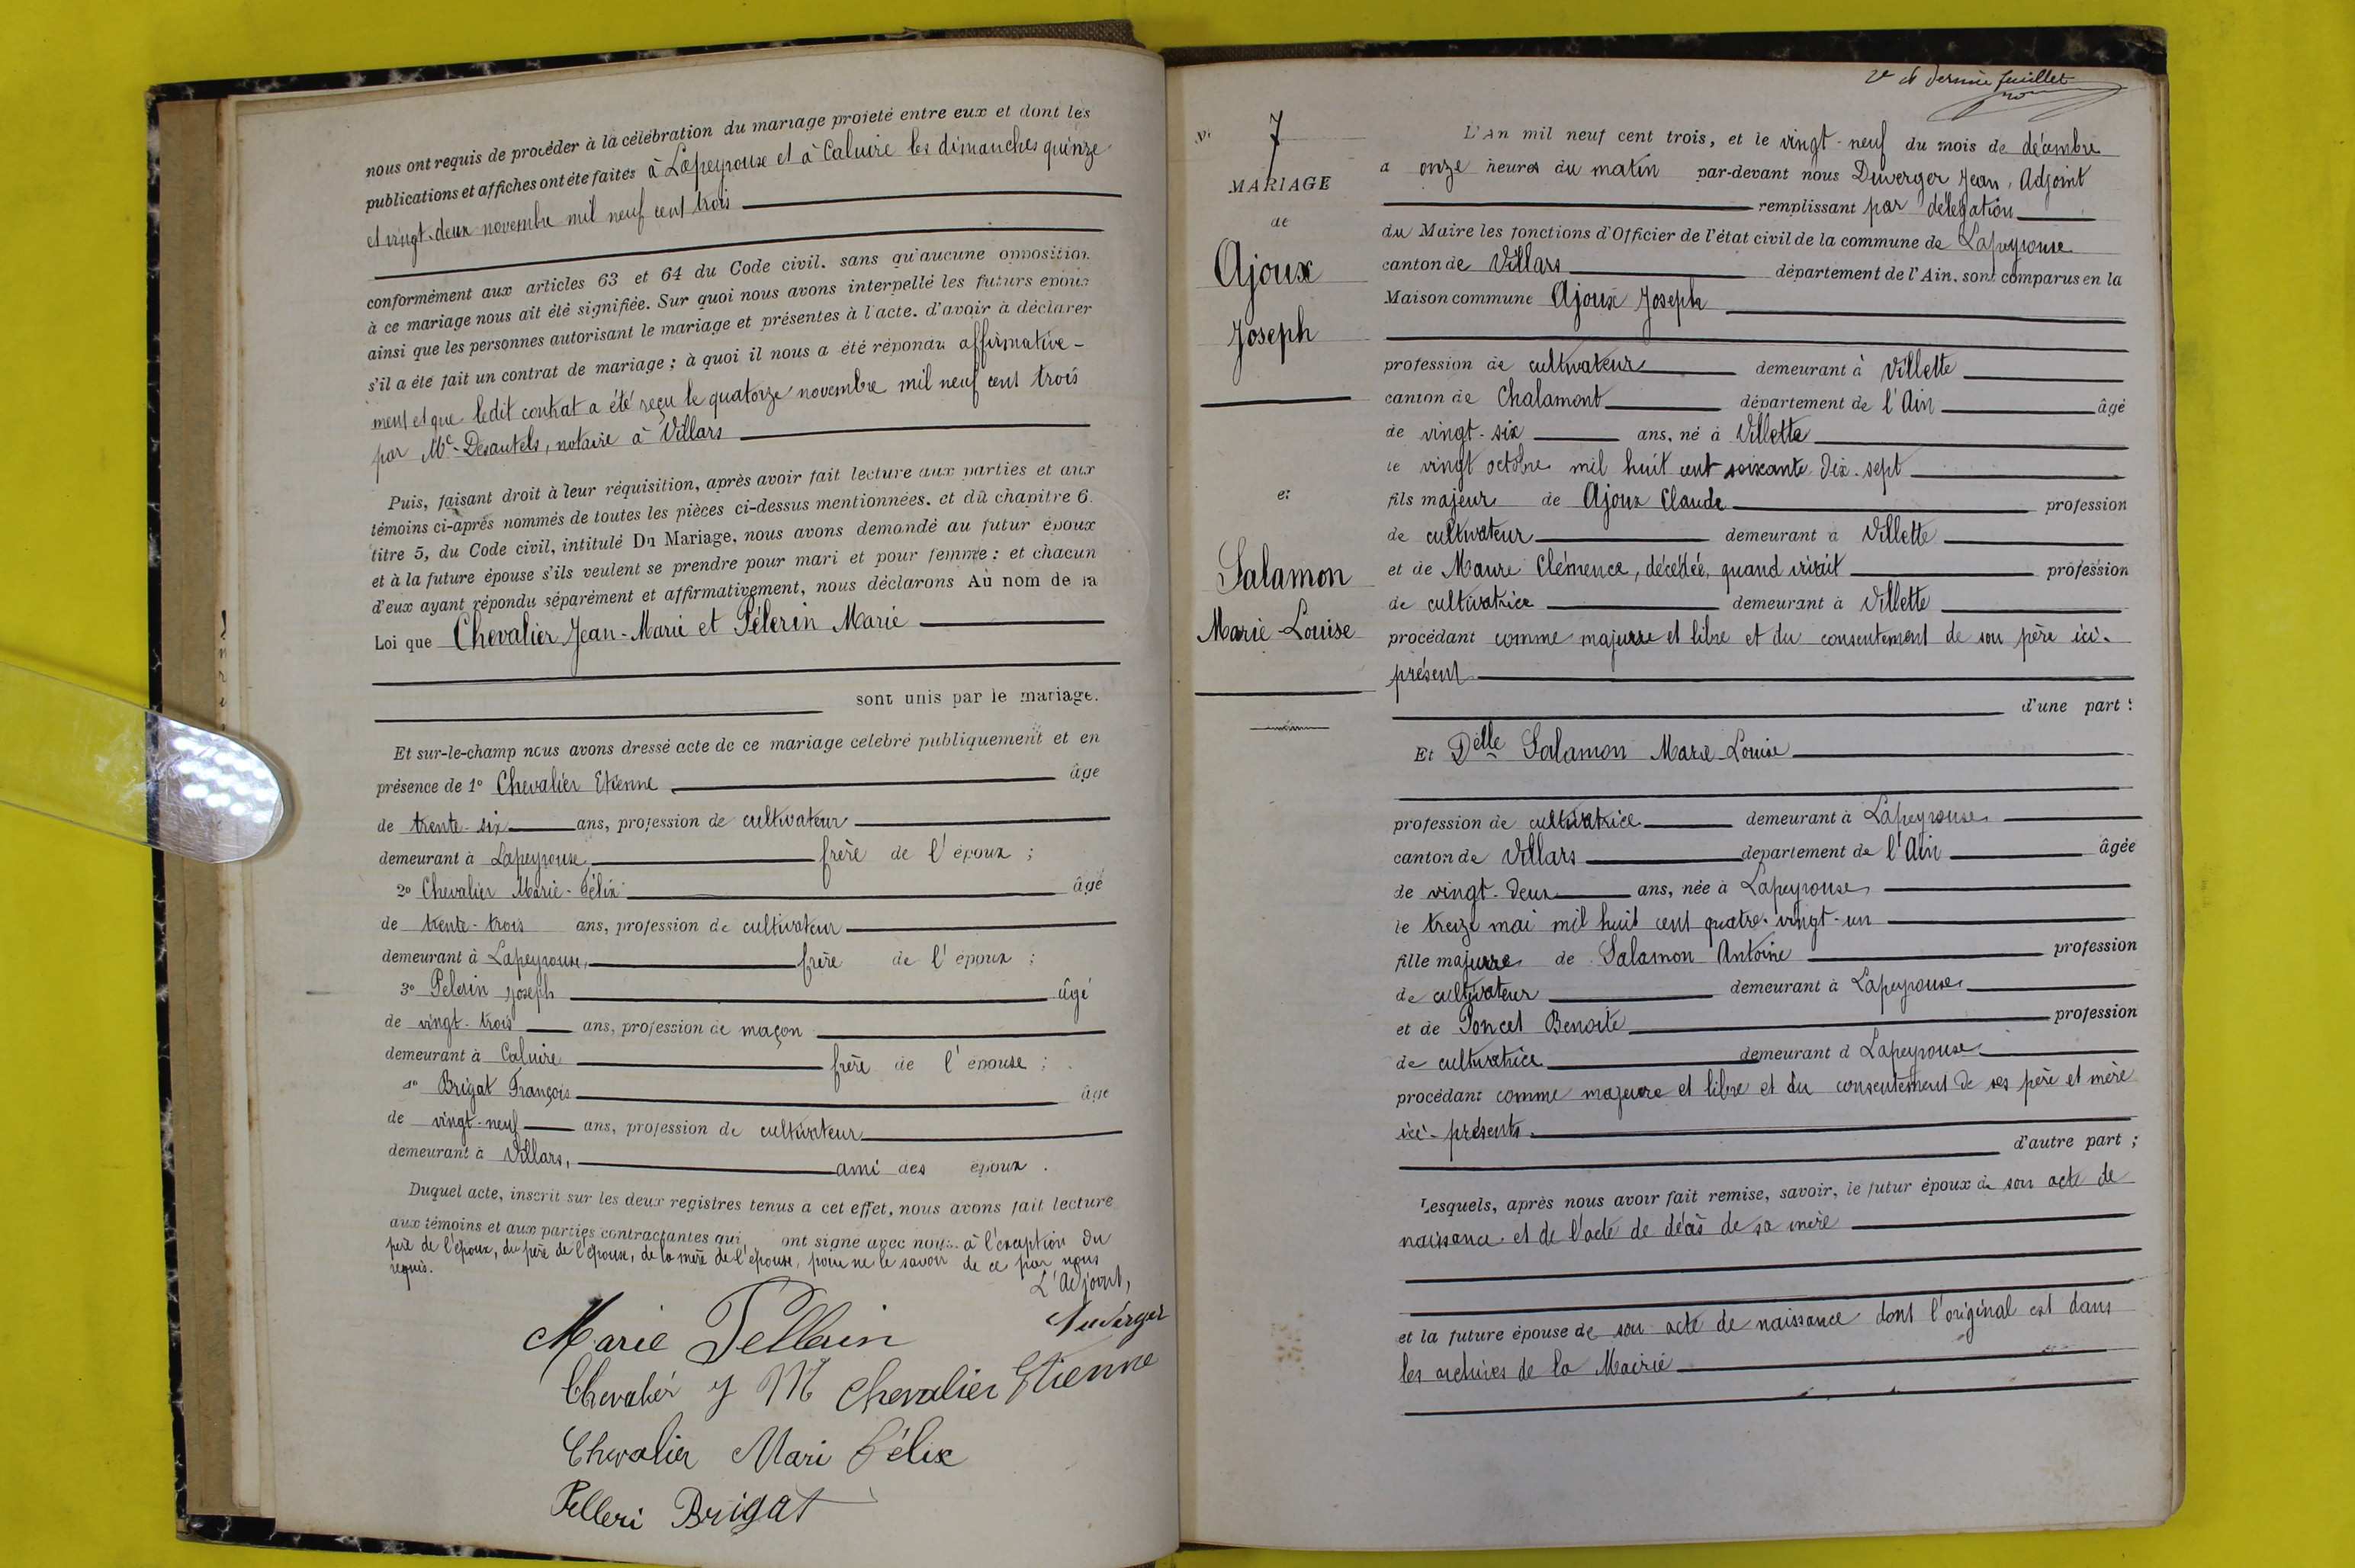 nous ont requis de procéder à la célébration du mariage projeté entre eux et dont les
publications et affiches ont été faites à Lapeyrouse et à Caluire les dimanches quinze
et vingt-deux novembre mil neuf cent trois
conformément aux articles 63 et 64 du Code civil. sans qu'aucune opposition
à ce mariage nous ait été signifiée. Sur quoi nous avons interpellé les futurs époux
ainsi que les personnes autorisant le mariage et présentes à l'acte. d'avoir à déclarer
s'il a été fait un contrat de mariage ; à quoi il nous a été répondu affirmative-
ment et que ledit contrat a été reçu le quatorze novembre mil neuf cent trois
par Me Desautels, notaire à Villars
Puis, faisant droit à leur réquisition, après avoir fait lecture aux parties et aux
témoins ci-après nommés de toutes les pièces ci-dessus mentionnées. et dû chapitre 6.
titre 5, du Code civil, intitulé Du Mariage, nous avons demandé au futur époux
et à la future épouse s'ils veulent se prendre pour mari et pour femme : et chacun
d'eux ayant répondu séparément et affirmativement, nous déclarons Au nom de la
Loi que Chevalier Jean-Marie et Pélerin Marie
sont unis par le mariage.
Et sur-le-champ nous avons dressé acte de ce mariage celebré publiquement et en
présence de 1° Chevalier Etienne âge
de trente-six ans, profession de cultivateur
demeurant à Lapeyrouse, frère de l'époux ;
2° Chevalier Marie-Félix âgé
de trente-trois ans, profession de cultivateur
demeurant à Lapeyrouse, frère de l'époux ;
3° Pelerin Joseph âgé
de vingt-trois ans, profession de maçon
demeurant à Caluire frère de l'épouse ;
4° Brigat François âgé
de vingt-neuf ans, profession de cultivateur
demeurant à Villars, ami des époux.
Duquel acte, inscrit sur les deux registres tenus a cet effet, nous avons fait lecture
aux témoins et aux parties contractantes qui, ont signé avec nous à l'exception du
père de l'époux, du père de l'épouse, de la mère de l'épouse, pour ne le savoir de ce par nous
requis.
L'Adjoint,
Duverger
Marie Pellerin
Chevalier J M Chevalier Etienne
Chevalier Mari Félix
Pelleri Brigat
2e et dernier feuillet
N° 7
MARIAGE
de
Ajoux
Joseph
et
Salamon
Marie-Louise
L'An mil neuf cent trois, et le vingt-neuf du mois de décembre
a onze heures du matin par-devant nous Duverger Jean, Adjoint
remplissant par délégation
du Maire les fonctions d'Officier de l'état civil de la commune de Lapeyrouse
canton de Villars département de l'Ain. sont comparus en la
Maison commune Ajoux Joseph
profession de cultivateur demeurant à Villette
canton de Chalamont département de l'Ain âgé
de vingt-six ans, né à Villette
le vingt octobre mil huit cent soixante dix-sept
fils majeur de Ajoux Claude profession
de cultivateur demeurant à Villette
et de Maure Clémence, décédée, quand vivait profession
de cultivatrice demeurant à Villette
procédant comme majeure et libre et du consentement de son père ici-
présent
d'une part :
Et Delle Salamon Marie-Louise
profession de cultivatrice demeurant à Lapeyrouse
canton de Villars departement de l'Ain âgée
de vingt-deux ans, née à Lapeyrouse
le treize mai mil huit cent quatre-vingt-un
fille majeure de Salamon Antoine profession
de cultivateur demeurant à Lapeyrouse
et de Poncet Benoite profession
de cultivatrice demeurant à Lapeyrouse
procédant comme majeure et libre et du consentement de ses père et mère
ici-présents.
d'autre part ;
Lesquels, après nous avoir fait remise, savoir, le futur époux de son acte de
naissance et de l'acte de décès de sa mère
et la future épouse de son acte de naissance dont l'original est dans
les archives de la Mairie